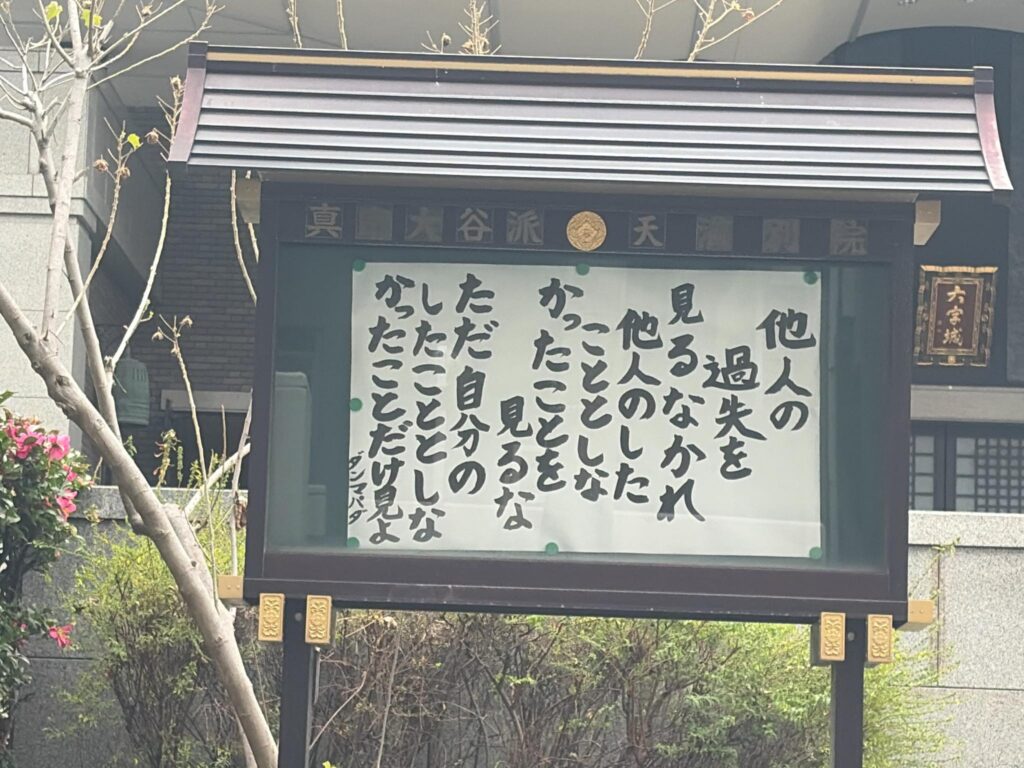 真 大谷派 天満別院
他人の
過失を
見るなかれ
他人のした
こととしな
かったことを
見るな
ただ自分の
したこととしな
かったことだけ見よ
ダンマパダ
六字城